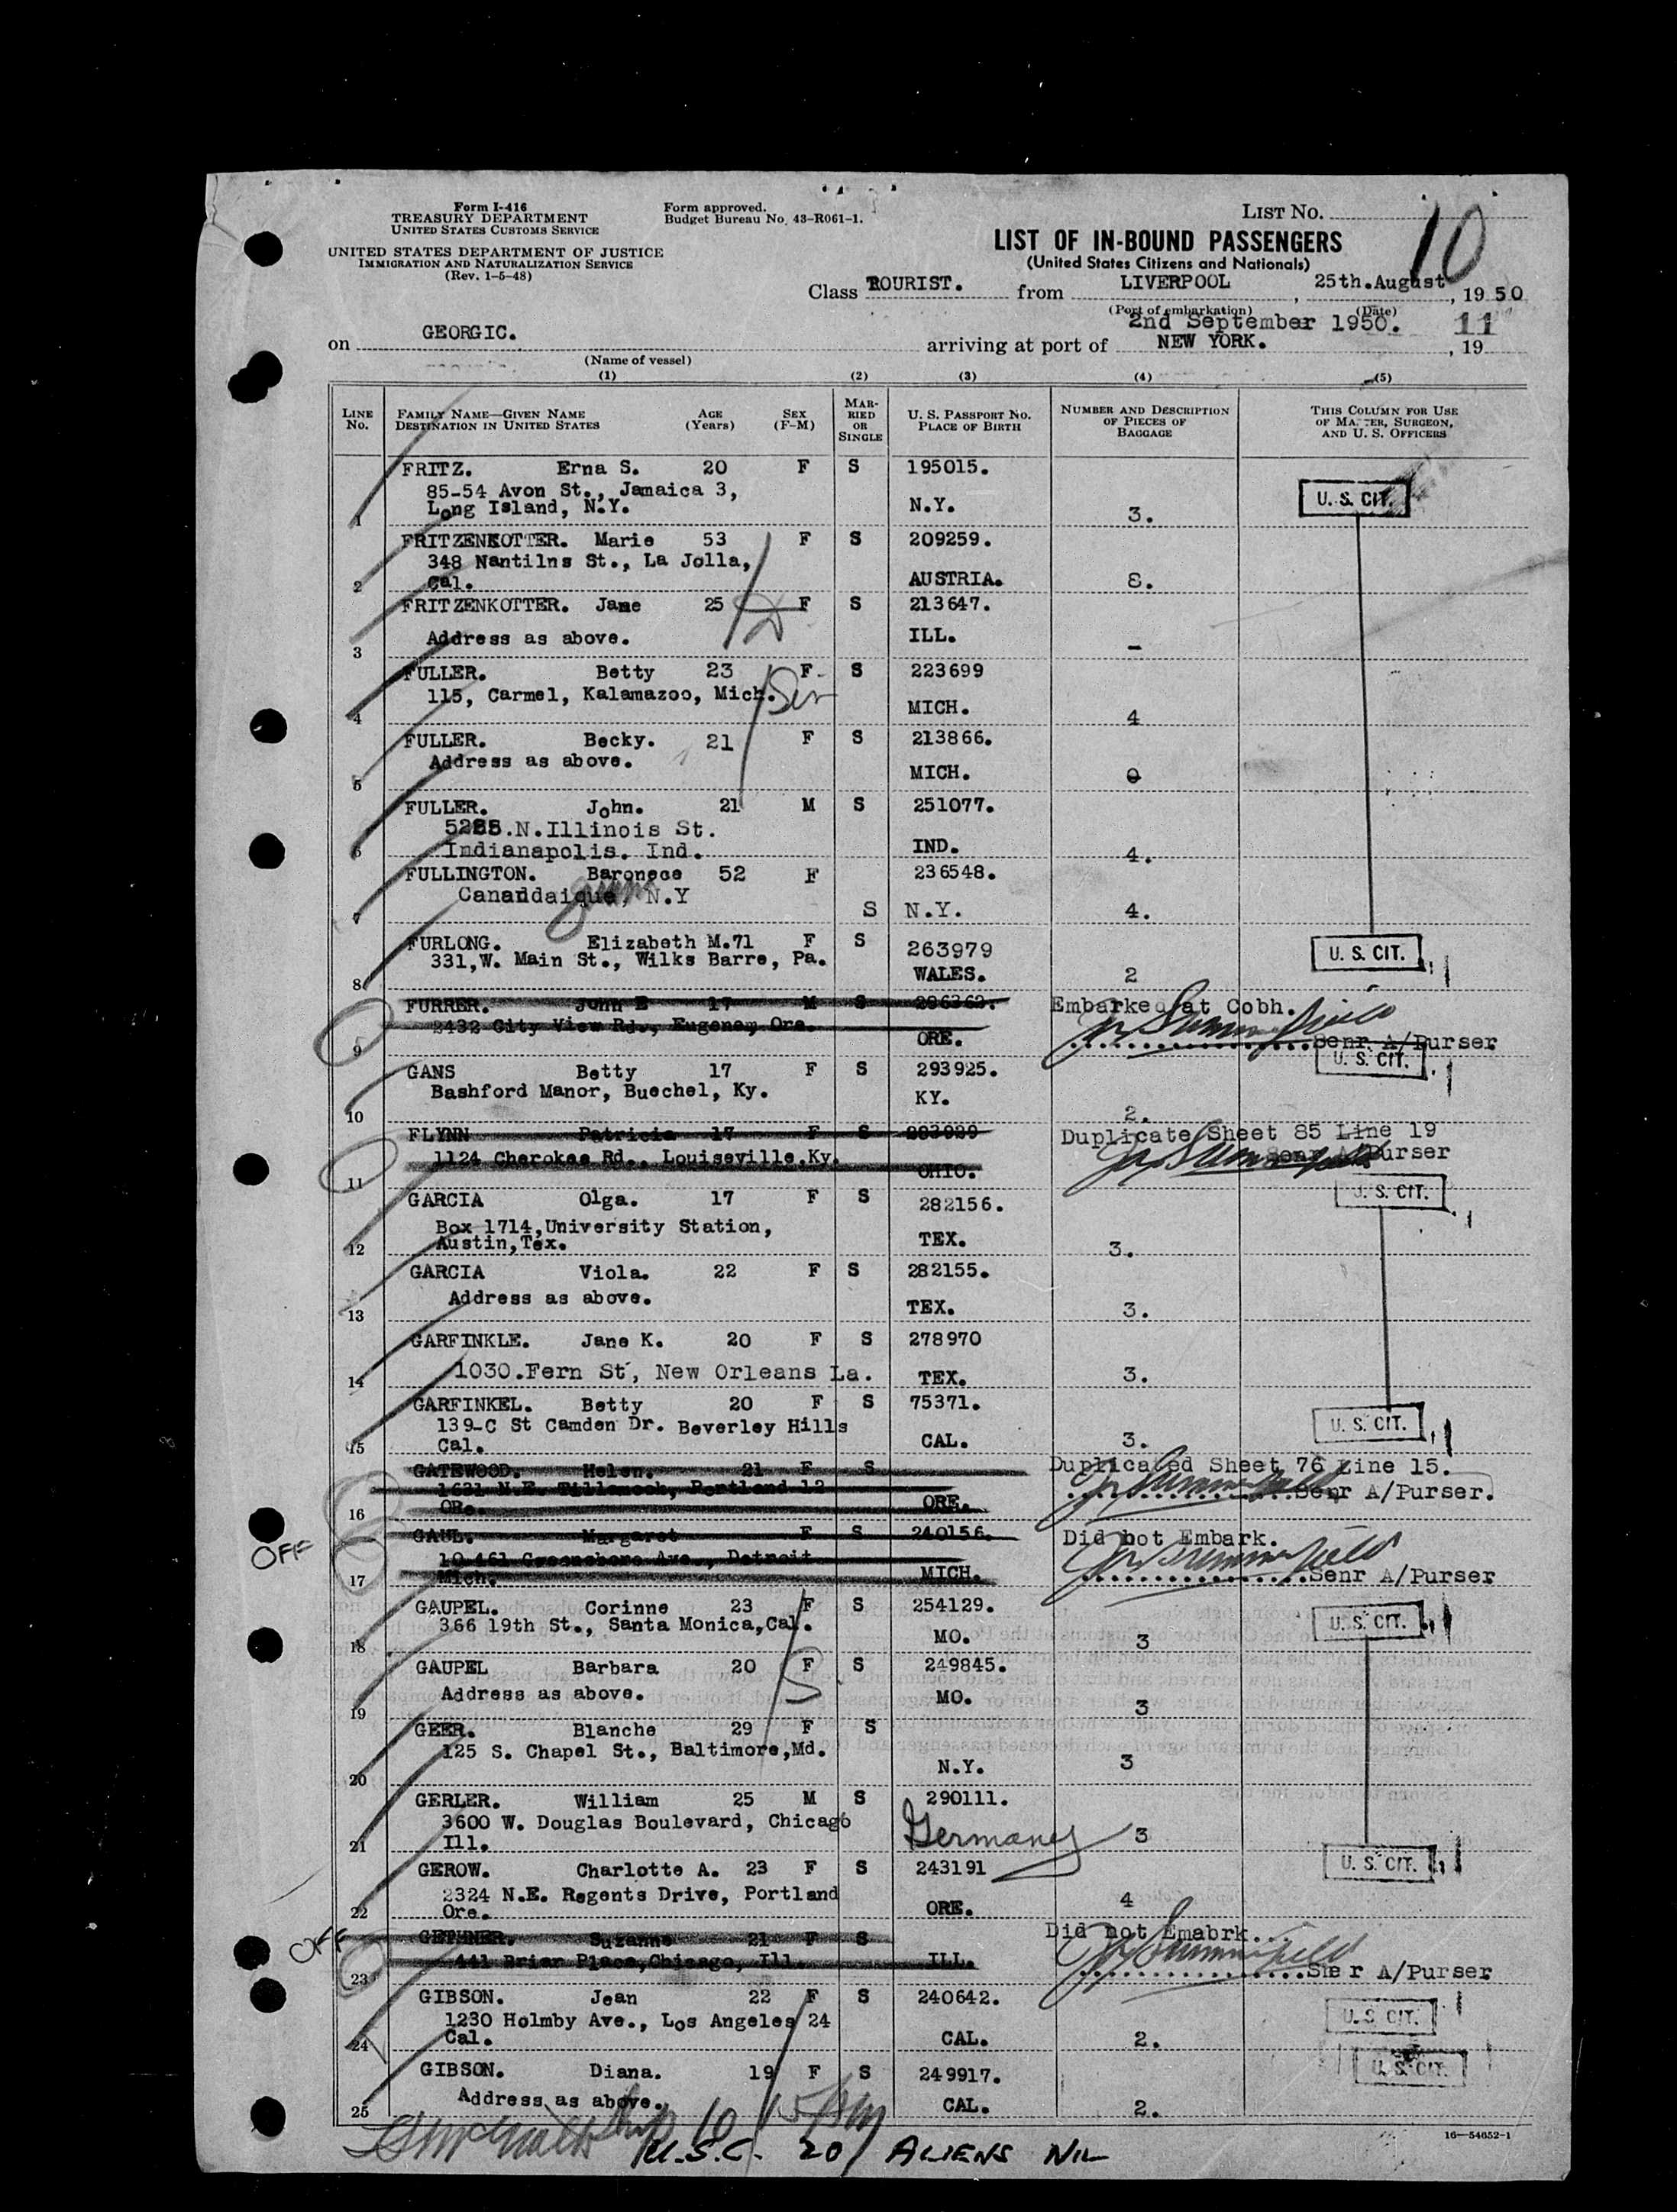 Form I-416
TREASURY DEPARTMENT
UNITED STATES CUSTOMS SERVICE
UNITED STATES DEPARTMENT OF JUSTICE
IMMIGRATION AND NATURALIZATION SERVICE
(Rev. 1-5-48)
Form approved.
Budget Bureau No. 43-R061-1.
LIST NO. 10
LIST OF IN-BOUND PASSENGERS
(United States Citizens and Nationals)
Class TOURIST. from LIVERPOOL, 25th.August, 1950
(Port of embarkation) (Date)
2nd September 1950. 11
on GEORGIC. arriving at port of NEW YORK., 19
(Name of vessel)
(1) (2) (3) (4) (5)
LINE NO.
FAMILY NAME—GIVEN NAME AGE SEX
DESTINATION IN UNITED STATES (Years) (F-M)
MARRIED OR SINGLE
U. S. PASSPORT NO.
PLACE OF BIRTH
NUMBER AND DESCRIPTION OF PIECES OF BAGGAGE
THIS COLUMN FOR USE OF MASTER, SURGEON, AND U. S. OFFICERS
FRITZ. Erna S. 20 F S 195015.
85-54 Avon St., Jamaica 3,
Long Island, N.Y. N.Y. 3. U. S. CIT.
1
FRITZENKOTTER. Marie 53 F S 209259.
348 Nantilns St., La Jolla,
2 Cal. AUSTRIA. 8.
FRITZENKOTTER. Jane 25 F S 213647.
3 Address as above. ILL. -
FULLER. Betty 23 F S 223699
115, Carmel, Kalamazoo, Mich.
4 MICH. 4
FULLER. Becky. 21 F S 213866.
Address as above.
5 MICH. 0
FULLER. John. 21 M S 251077.
N.Illinois St.
6 Indianapolis. Ind. IND. 4.
FULLINGTON. Baronece 52 F 236548.
Canandaigue, N.Y
7 S N.Y. 4.
FURLONG. Elizabeth M. 71 F S 263979
331,W. Main St., Wilks Barre, Pa. U. S. CIT.
8 WALES. 2
FURRER. John E 17 M S 286362. Embarked at Cobh.
2432 City View Rd., Eugene, Ore.
9 ORE. Senr A/Purser
U. S. CIT.
GANS Betty 17 F S 293925.
Bashford Manor, Buechel, Ky.
10 KY. 2.
FLYNN Patricia 17 F S 293929 Duplicate Sheet 85 Line 19
1124 Cherokee Rd., Louiseville,Ky. Senr A/Purser
11 OHIO.
U. S. CIT.
GARCIA Olga. 17 F S 282156.
Box 1714,University Station,
12 Austin,Tex. TEX. 3.
GARCIA Viola. 22 F S 282155.
Address as above.
13 TEX. 3.
GARFINKLE. Jane K. 20 F S 278970
14 1030.Fern St, New Orleans La. TEX. 3.
GARFINKEL. Betty 20 F S 75371.
139-C St Camden Dr. Beverley Hills U. S. CIT.
15 Cal. CAL. 3.
GATEWOOD. Helen. 21 F S Duplicated Sheet 76 Line 15.
1631 N.E. Tillamook, Portland 12
16 ORe. ORE. Senr A/Purser.
OFF
GAUL. Margaret F S 240156. Did not Embark.
Greensboro Ave., Detroit
17 Mich. MICH. Senr A/Purser
GAUPEL. Corinne 23 F S 254129.
366 19th St., Santa Monica,Cal. U. S. CIT.
18 MO. 3
GAUPEL Barbara 20 F S 249845.
Address as above.
19 MO. 3
GEER. Blanche 29 F S
125 S. Chapel St., Baltimore,Md.
20 N.Y. 3
GERLER. William 25 M S 290111.
3600 W. Douglas Boulevard, Chicago
21 Ill. Germany 3
U. S. CIT.
GEROW. Charlotte A. 23 F S 243191
2324 N.E. Regents Drive, Portland
22 Ore. ORE. 4
OFF
GETHNER. Suzanne 21 F S Did not Emabrk...
441 Briar Place,Chicago, Ill. ILL.
23 A/Purser
GIBSON. Jean 22 F S 240642.
1230 Holmby Ave., Los Angeles 24 U. S. CIT.
24 Cal. CAL. 2.
GIBSON. Diana. 19 F S 249917. U. S. CIT.
Address as above.
25 CAL. 2.
16—54652-1
U.S.C. 20/ ALIENS NIL